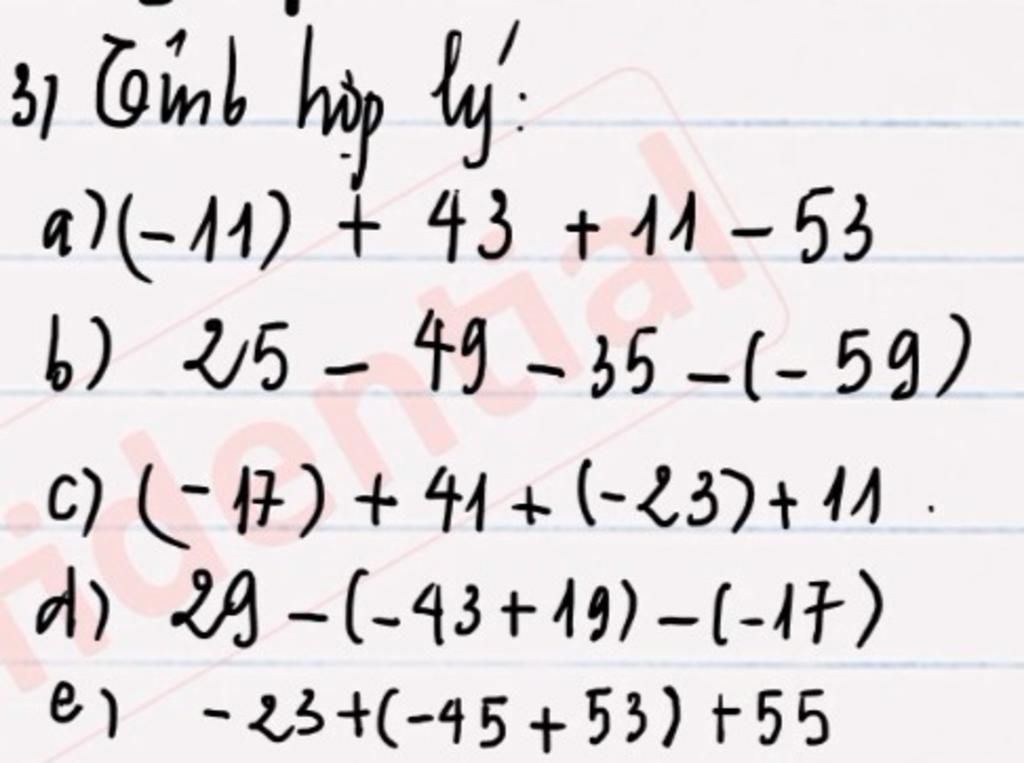 3) Tính hợp lý:
a) (-11) + 43 + 11 - 53
b) 25 - 49 - 35 - (- 59)
c) (- 17) + 41 + (-23) + 11 .
d) 29 - (- 43 + 19) - (-17)
e) - 23 + (- 45 + 53) + 55
idential